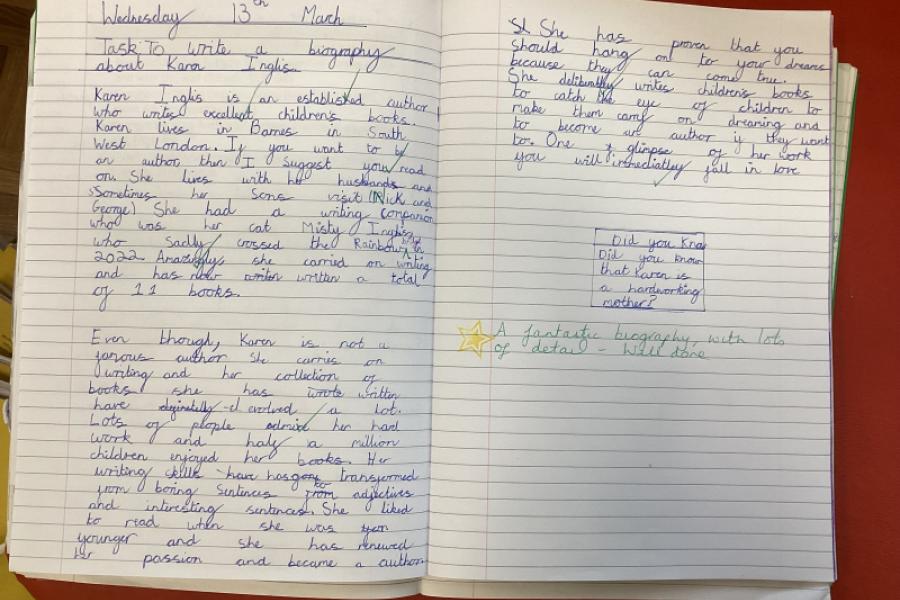 Wednesday 13th March
Task: To write a biography
about Karen Inglis.
Karen Inglis is an established author
who writes excellent children's books.
Karen lives in Barnes in South
West London. If you want to be
an author, then I suggest you read
on. She lives with her husbands and
Sometimes her sons visit (Nick and
George) She had a writing companion
who was her cat Misty Inglis
who sadly crossed the Rainbow in
2022. Amazingly she carried on writing
and has now written a total
of 11 books.
Even though, Karen is not a
famous author she carries on
writing and her collection of
books she has wrote written
have evolved a lot.
Lots of people admire her hard
work and half a million
children enjoyed her books. Her
writing skills have has gone transformed
from boring sentences to from adjectives
and interesting sentences. She liked
to read when she was
younger and she has renewed
her passion and became a author.
She has proven that you
should hang on to your dreams
because they can come true.
She deliberatley writes children's books
to catch the eye of children to
make them carry on dreaming and
to become an author if they want
to. One glimpse of her work
you will immediatley fall in love
Did you Know
Did you know
that Karen is
a hardworking
mother?
A fantastic biography, with lots
of detail - Well done